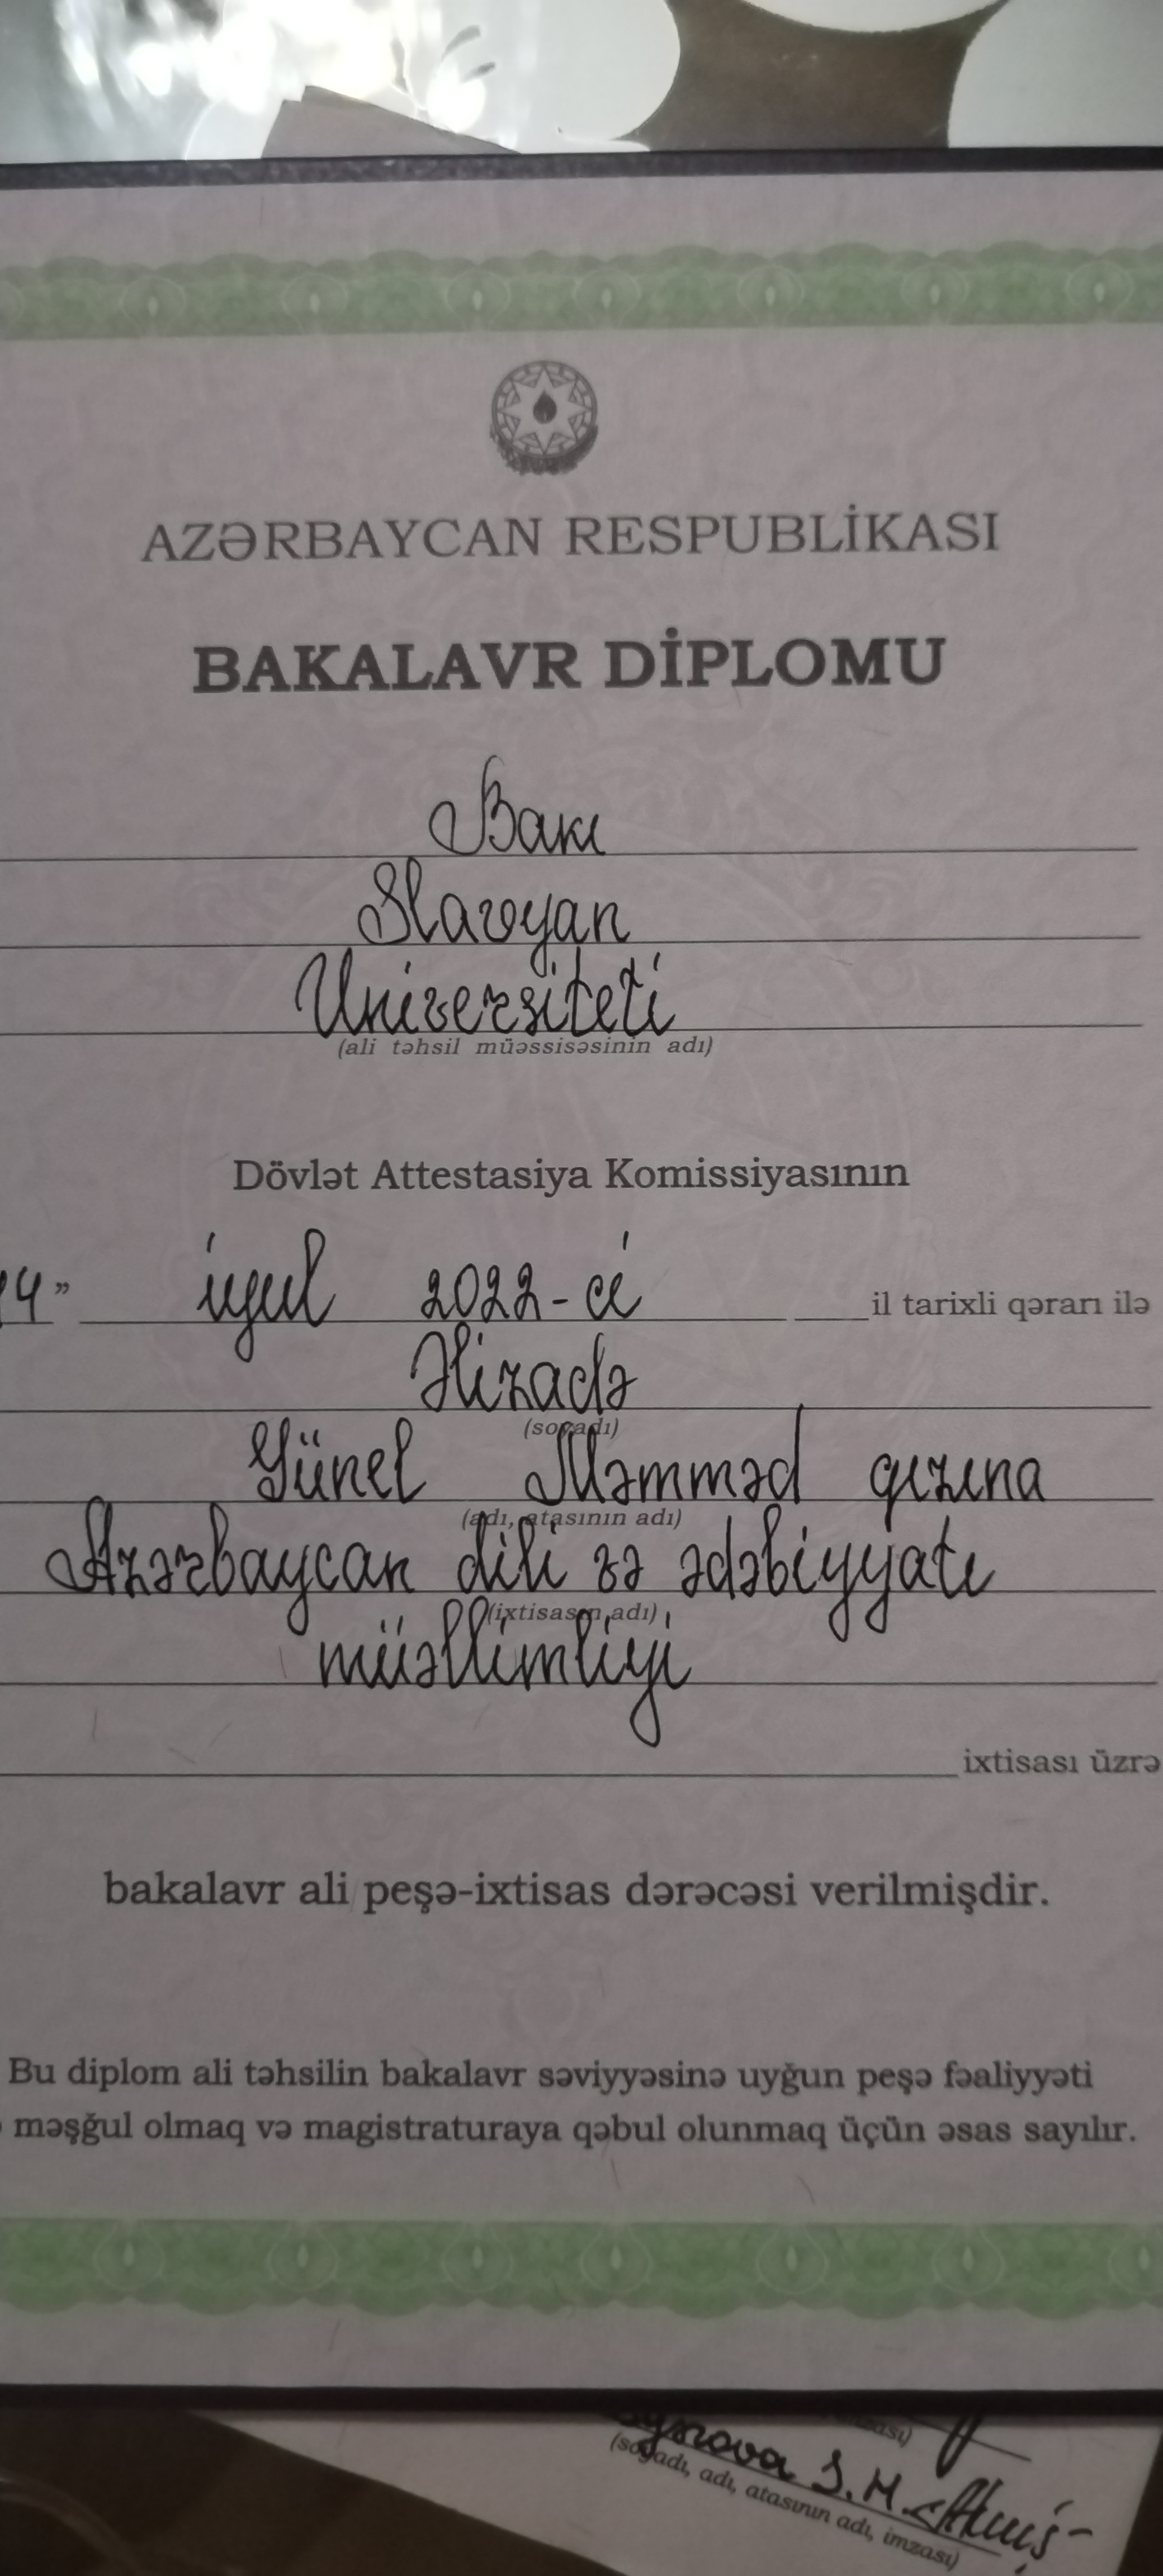 AZƏRBAYCAN RESPUBLİKASI
BAKALAVR DİPLOMU
Bakı
Slavyan
Universiteti
(ali təhsil müəssisəsinin adı)
Dövlət Attestasiya Komissiyasının
4” iyul 2022-ci il tarixli qərarı ilə
Əlizadə
(soyadı)
Günel Məmməd qızına
(adı, atasının adı)
Azərbaycan dili və ədəbiyyatı
(ixtisasın adı)
müəllimliyi
ixtisası üzrə
bakalavr ali peşə-ixtisas dərəcəsi verilmişdir.
Bu diplom ali təhsilin bakalavr səviyyəsinə uyğun peşə fəaliyyəti
məşğul olmaq və magistraturaya qəbul olunmaq üçün əsas sayılır.
S.M.
(soyadı, adı, atasının adı, imzası)